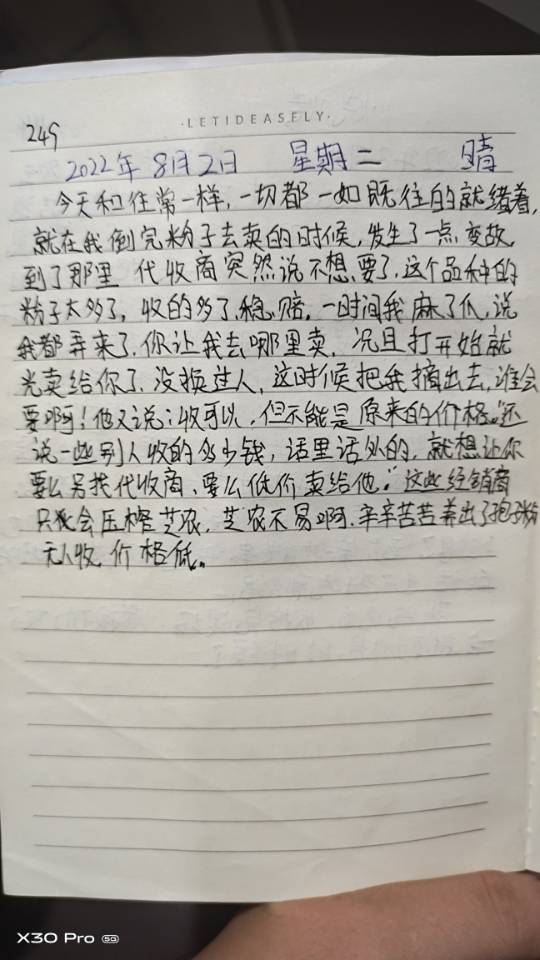 ·LETIDEASFLY·
249
2022年8月2日 星期二 晴
今天和往常一样,一切都一如既往的就绪着,
就在我倒完粉子去卖的时候,发生了一点变故,
到了那里 代收商突然说不想要了,这个品种的
粉子太多了,收的多了,稳赔,一时间我麻了爪,说
我都弄来了,你让我去哪里卖,况且打开始就
光卖给你了,没换过人,这时候把我摘出去,谁会
要啊!他又说:收可以,但不能是原来的价格。"还
说一些别人收的多少钱,话里话外的,就想让你
要么另找代收商,要么低价卖给他。"这些经销商
只会压榨芝农,芝农不易啊,辛辛苦苦养出了孢子粉
无人收,价格低。
X30 Pro 5G